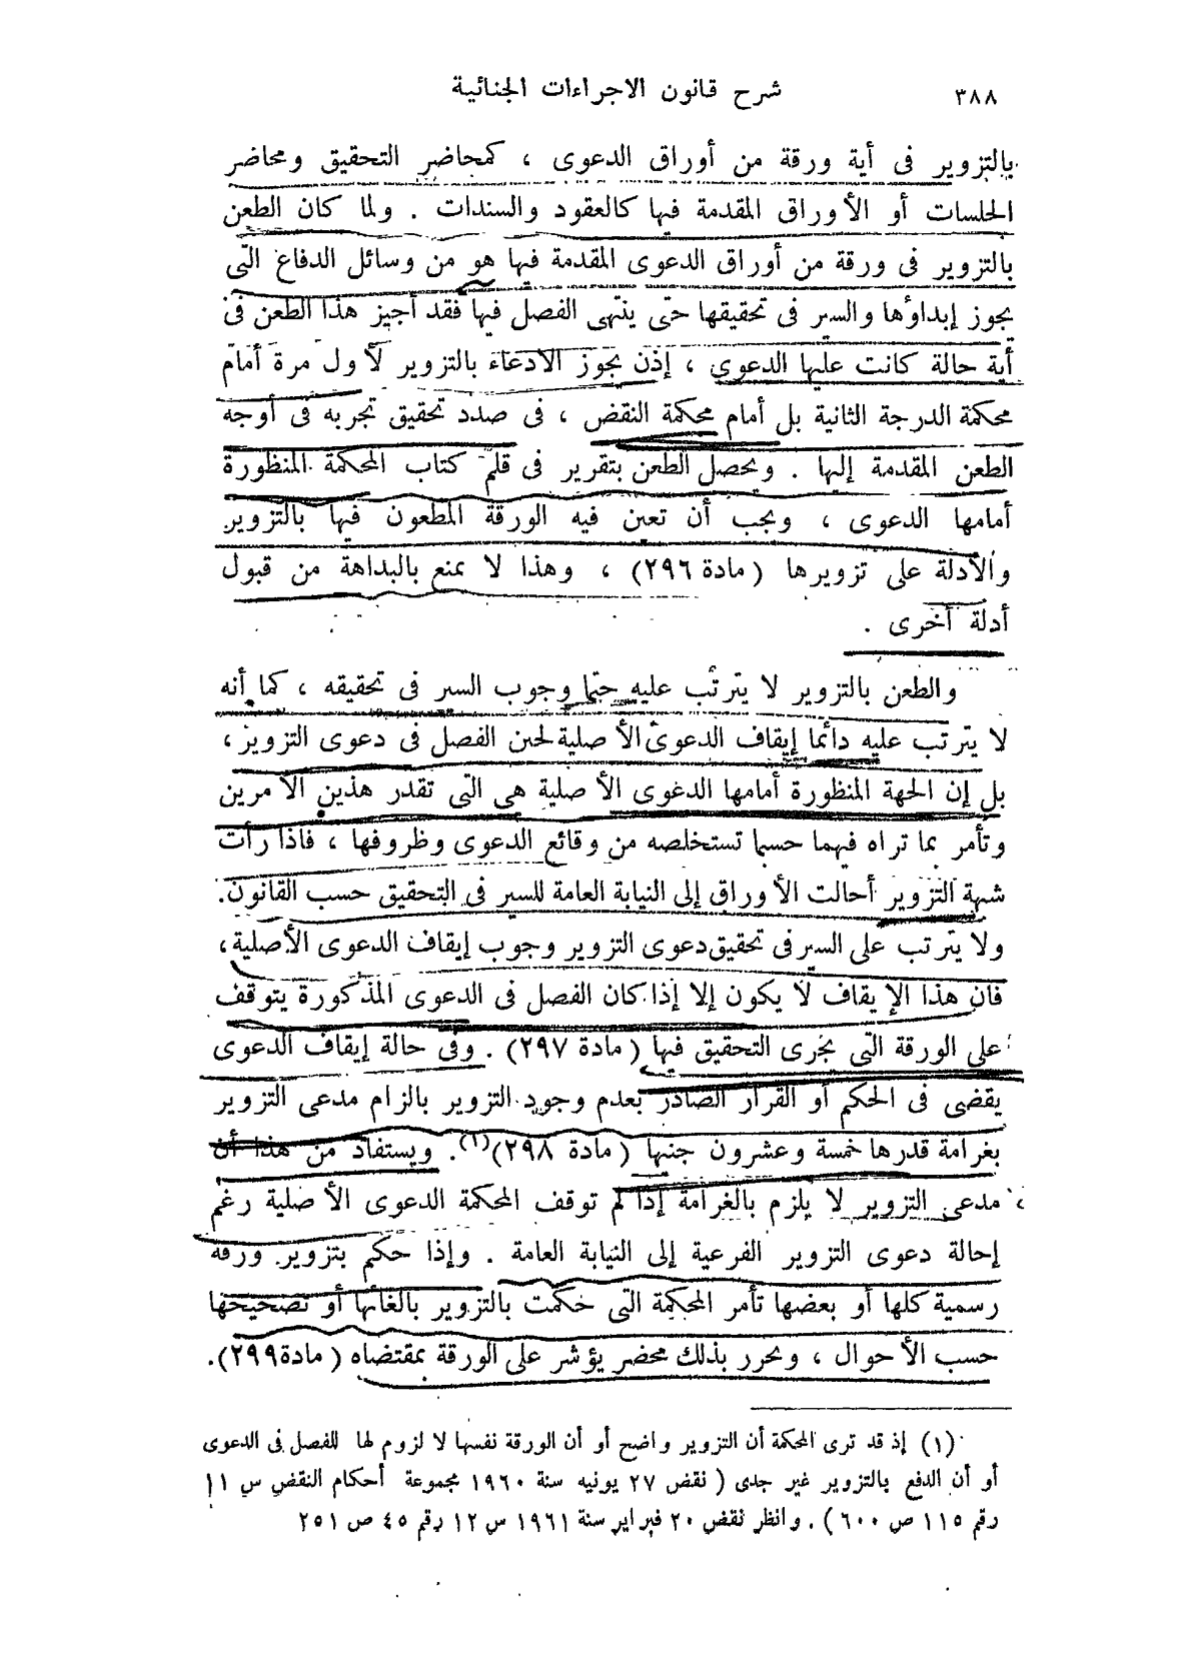 ٣٨٨
شرح قانون الاجراءات الجنائية
بالتزوير فى أية ورقة من أوراق الدعوى ، كمحاضر التحقيق ومحاضر
الجلسات أو الأوراق المقدمة فيها كالعقود والسندات . ولما كان الطعن
بالتزوير فى ورقة من أوراق الدعوى المقدمة فيها هو من وسائل الدفاع التى
يجوز إبداؤها والسير فى تحقيقها حتى ينتهى الفصل فيها فقد أجيز هذا الطعن فى
أية حالة كانت عليها الدعوى ، إذن يجوز الادعاء بالتزوير لأول مرة أمام
محكمة الدرجة الثانية بل أمام محكمة النقض ، فى صدد تحقيق تجريه فى أوجه
الطعن المقدمة إليها . ويحصل الطعن بتقرير فى قلم كتاب المحكمة المنظورة
أمامها الدعوى ، ويجب أن تعين فيه الورقة المطعون فيها بالتزوير
والأدلة على تزويرها ( مادة ٢٩٦ ) ، وهذا لا يمنع بالبداهة من قبول
أدلة أخرى .
والطعن بالتزوير لا يترتب عليه حتما وجوب السير فى تحقيقه ، كما أنه
لا يترتب عليه دائما إيقاف الدعوى الأصلية لحين الفصل فى دعوى التزوير ،
بل إن الجهة المنظورة أمامها الدعوى الأصلية هى التى تقدر هذين الأمرين
وتأمر بما تراه فيهما حسبما تستخلصه من وقائع الدعوى وظروفها ، فاذا رأت
شبهة التزوير أحالت الأوراق إلى النيابة العامة للسير فى التحقيق حسب القانون .
ولا يترتب على السير فى تحقيق دعوى التزوير وجوب إيقاف الدعوى الأصلية ،
فان هذا الإيقاف لا يكون إلا إذا كان الفصل فى الدعوى المذكورة يتوقف
على الورقة التى يجرى التحقيق فيها ( مادة ٢٩٧ ) . وفى حالة إيقاف الدعوى
يقضى فى الحكم أو القرار الصادر بعدم وجود التزوير بالزام مدعى التزوير
بغرامة قدرها خمسة وعشرون جنيها ( مادة ٢٩٨ )(١). ويستفاد من هذا أن
مدعى التزوير لا يلزم بالغرامة إذا لم توقف المحكمة الدعوى الأصلية رغم
إحالة دعوى التزوير الفرعية إلى النيابة العامة . وإذا حكم بتزوير ورقة
رسمية كلها أو بعضها تأمر المحكمة التى حكمت بالتزوير بالغائها أو تصحيحها
حسب الأحوال ، ويحرر بذلك محضر يؤشر على الورقة بمقتضاه ( مادة ٢٩٩ ).
(١) إذ قد ترى المحكمة أن التزوير واضح أو أن الورقة نفسها لا لزوم لها للفصل فى الدعوى
أو أن الدفع بالتزوير غير جدى ( نقض ٢٧ يونيه سنة ١٩٦٠ مجموعة أحكام النقض س ١١
رقم ١١٥ ص ٦٠٠ ) . وانظر نقض ٢٠ فبراير سنة ١٩٦١ س ١٢ رقم ٤٥ ص ٢٥١